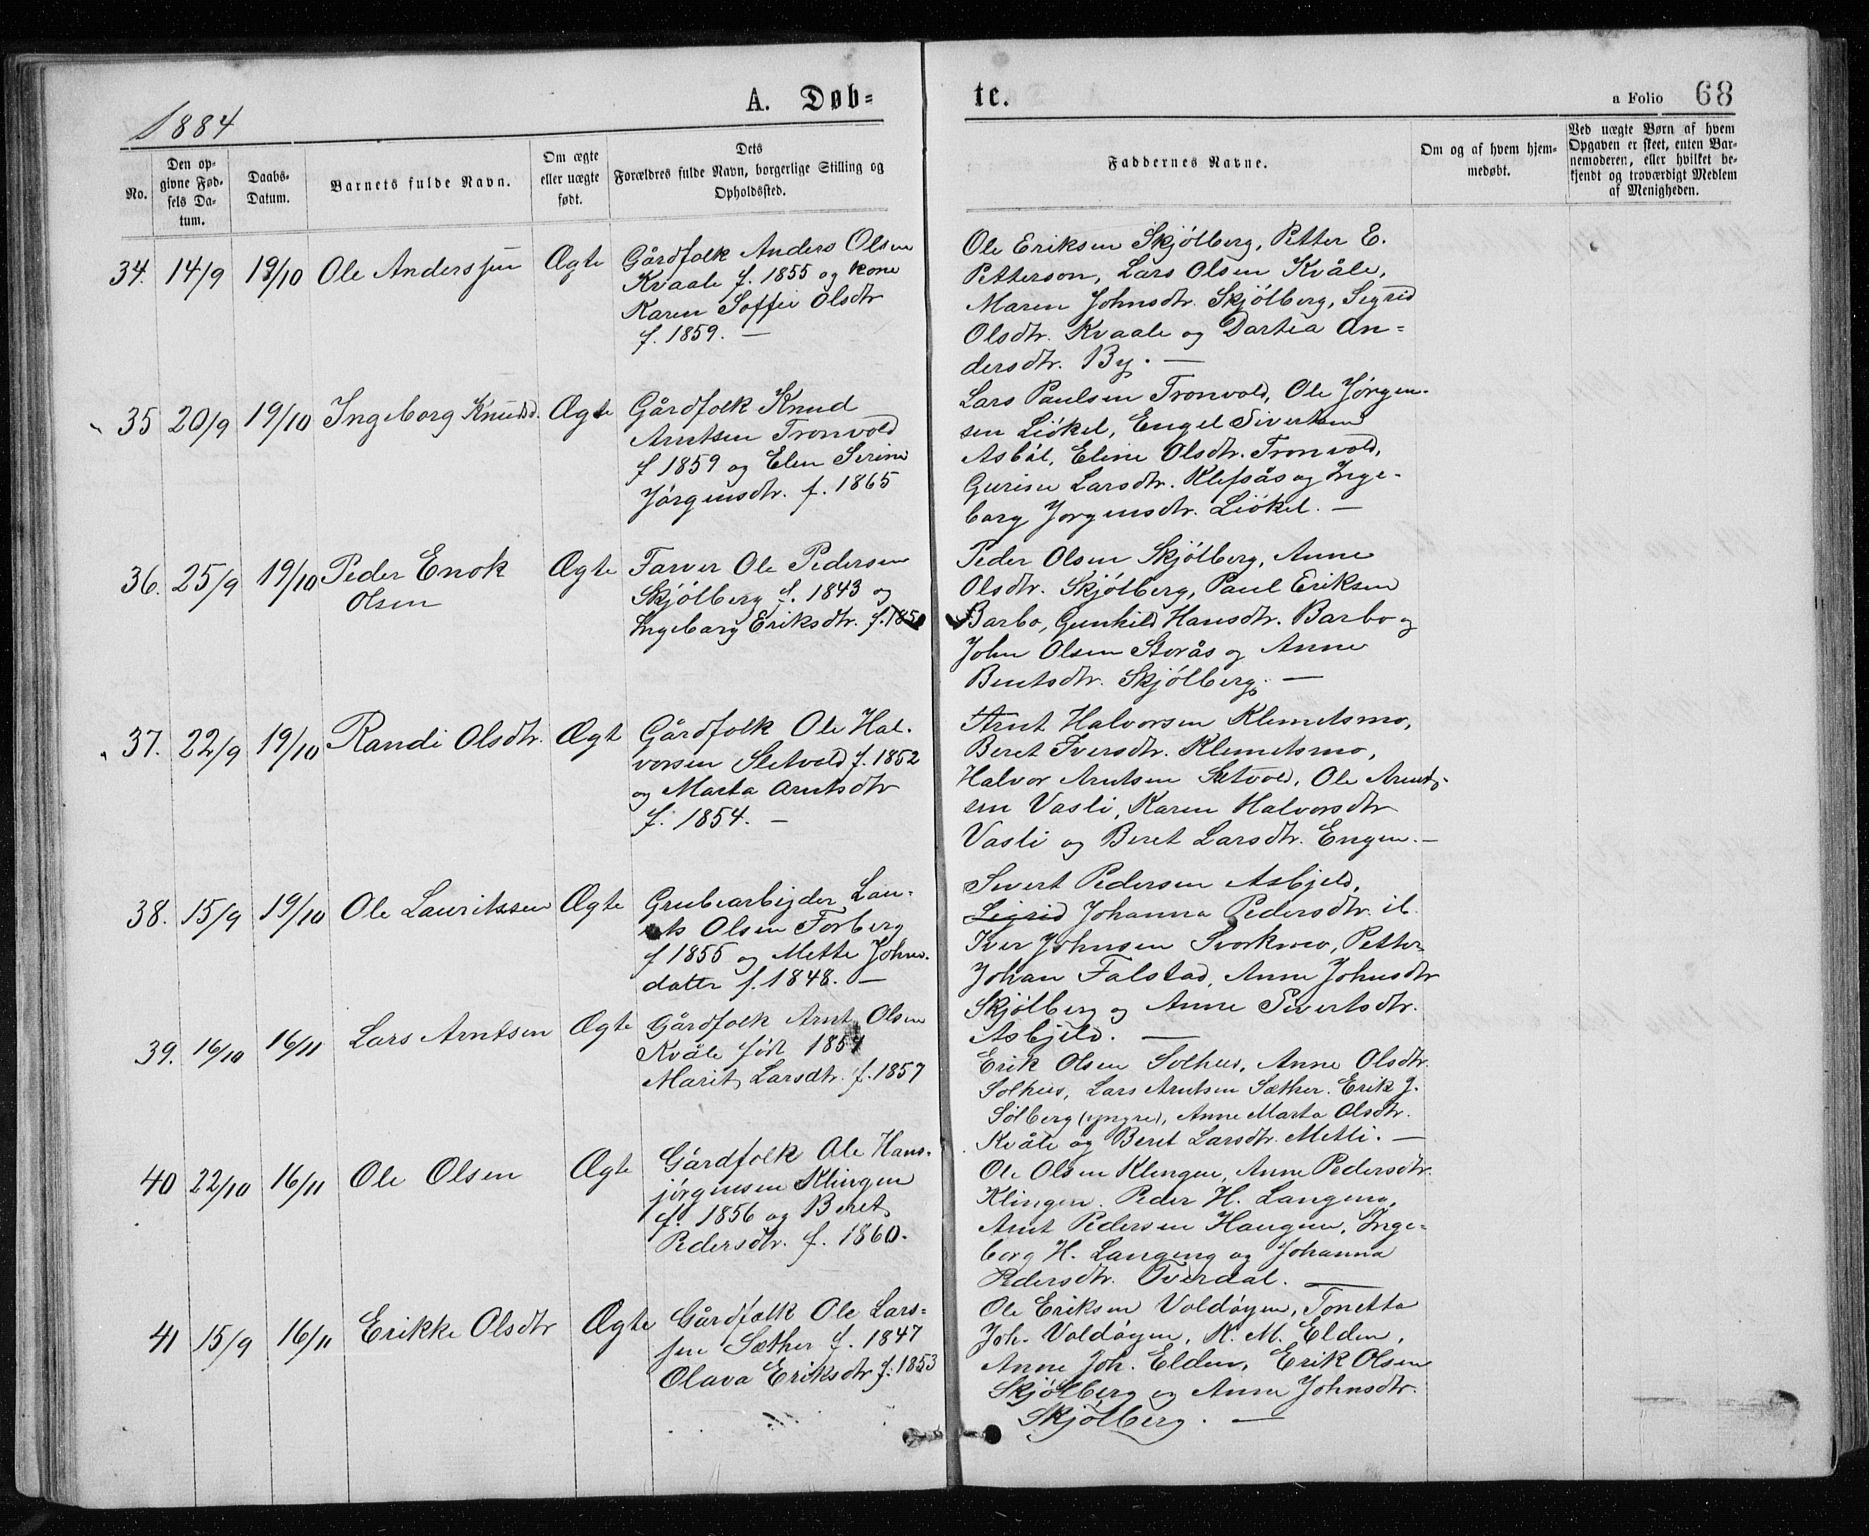 1884
A. Døb=
te.
a Folio 68
No.
Den op-
givne Fød-
sels Da-
tum.
Daabs-
Datum.
Barnets fulde Navn.
Om ægte
eller uægte
født.
Dets
Forældres fulde Navn, borgerlige Stilling og
Opholdssted.
Faddernes Navne.
Om og af hvem hjem-
medøbt.
Ved uægte Børn af hvem
Opgaven er skeet, enten Bar-
nemoderen, eller hvilket be-
kjendt og troværdigt Medlem
af Menigheden.
34. 14/9 19/10 Ole Anderssen Ægte
Gårdfolk Anders Olsen
Kvaale f. 1855 og kone
Karen Soffie Olsdtr
f. 1859. —
Ole Eriksen Skjölberg, Petter E.
Petterson, Lars Olsen Kvåle,
Maren Johnsdtr. Skjölberg, Sigrid
Olsdtr. Kvaale og Dartea An=
dersdtr. By. —
35 20/9 19/10 Ingeborg Knudsd. Ægte
Gårdfolk Knud
Arntsen Tronvold
f 1859 og Elen Serine
Jörgensdtr. f. 1865
Lars Paulsen Tronvold, Ole Jörgen-
sen Liökel, Engel Sivertsen
Asböl, Eline Olsdtr. Tronvold,
Gurine Larsdtr. Klefsås og Inge-
borg Jorgensdtr. Liökel. —
36. 25/9 19/10 Peder Enok
Olsen
Ægte
Farver Ole Pedersen
Skjölberg f. 1843 og
Ingebarg Eriksdtr. f. 185
Peder Olsen Skjölberg, Anne
Olsdtr. Skjölberg, Paul Eriksen
Barbo, Gunhild Hansdtr. Barbo og
John Olsen Storås og Anne
Bentsdtr. Skjölberg. —
37. 22/9 19/10 Randi Olsdtr. Ægte
Gårdfolk Ole Hal-
vorsen Sletvold f. 1852
og Marta Arntsdtr
f. 1854. —
Arnt Halvorsen Klemetsmo,
Beret Iversdtr. Klemetsmo,
Halvor Arntsen Sletvold, Ole Arnt-
sen Vasli, Karen Halvorsdtr
Vasli og Beret Larsdtr. Engen. —
38. 15/9 19/10 Ole Lauritssen Ægte
Grubearbejder Lau-
its Olsen Forberg
f 1855 og Mette Johns-
datter f. 1848. —
Sivert Pedersen Asbjeld,
Sigrid Johanna Pedersdtr. ib.
Iver Johnsen Svorkmo, Petter
Johan Falstad, Anne Johnsdtr
Skjölberg og Anne Sivertsdtr.
Asbjeld. —
39. 16/10 16/11 Lars Arntsen Ægte
Gårdfolk Arnt Olsen
Kvåle föd 1854
Marit Larsdtr. f. 1857
Erik Olsen Solhus, Anne Olsdtr.
Solhus, Lars Arntsen Sæther. Erik J.
Sölberg (yngre), Anne Marta Olsdtr.
Kvåle og Beret Larsdtr. Metli. —
40 22/10 16/11 Ole Olsen Ægte
Gårdfolk Ole Hans-
jörgensen Klingen
f. 1856 og Beret
Pedersdtr. f. 1860.
Ole Olsen Klingen, Anne Pedersdtr.
Klingen. Peder H. Langeng,
Arnt Pedersen Haugen, Inge-
borg H. Langeng og Johanna
Pedersdtr. Tverdal. —
41 15/9 16/11 Erikke Olsdtr Ægte
Gårdfolk Ole Lars=
sen Sæther f. 1847
Olava Eriksdtr f. 1853
Ole Eriksen Voldöyen, Tonetta
Joh. Voldöyen, K. M. Elden,
Anne Joh. Elden, Erik Olsen
Skjölberg og Anne Johnsdtr.
Skjölberg. —